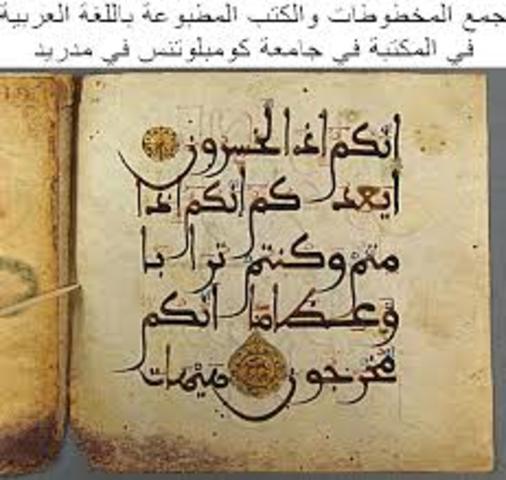 جمع المخطوطات والكتب المطبوعة باللغة العربية
في المكتبة في جامعة كومبلوتنس في مدريد
انكم اذا لخسرون
ايعد كم انكم اذا
متم وكنتم ترابا
وعظاما انكم
مخرجون هيهات